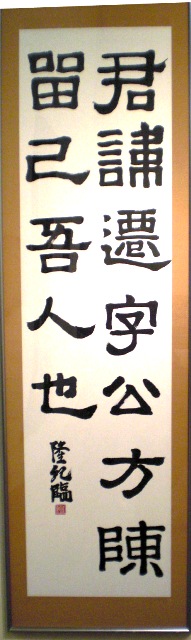 君諱遷字公方陳
留己吾人也
隆紀臨